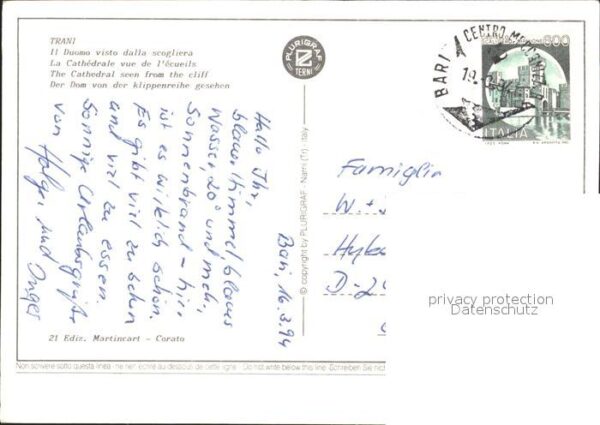 TRANI
Il Duomo visto dalla scogliera
La Cathédrale vue de l'écueils
The Cathedral seen from the cliff
Der Dom von der klippenreihe gesehen
PLURIGRAF
TERNI
BARI CENTRO
600
ITALIA
Bari, 16.3.94
Hallo Ihr,
blauer Himmel blaues
Wasser, 20° und mehr,
Sonnenbrand – hier
ist es wirklich schön.
Es gibt viel zu sehen
und viel zu essen.
Sonnige Urlaubsgrüße
von Holger und Inges
© copyright by PLURIGRAF - Narni (Tr), Italy
Famiglia
W. +
D-2
privacy protection
Datenschutz
21 Ediz. Martincart - Corato
Non scrivere sotto questa linea - ne rien écrire au dessous de cette ligne - Do not write below this line. Schreiben Sie nicht